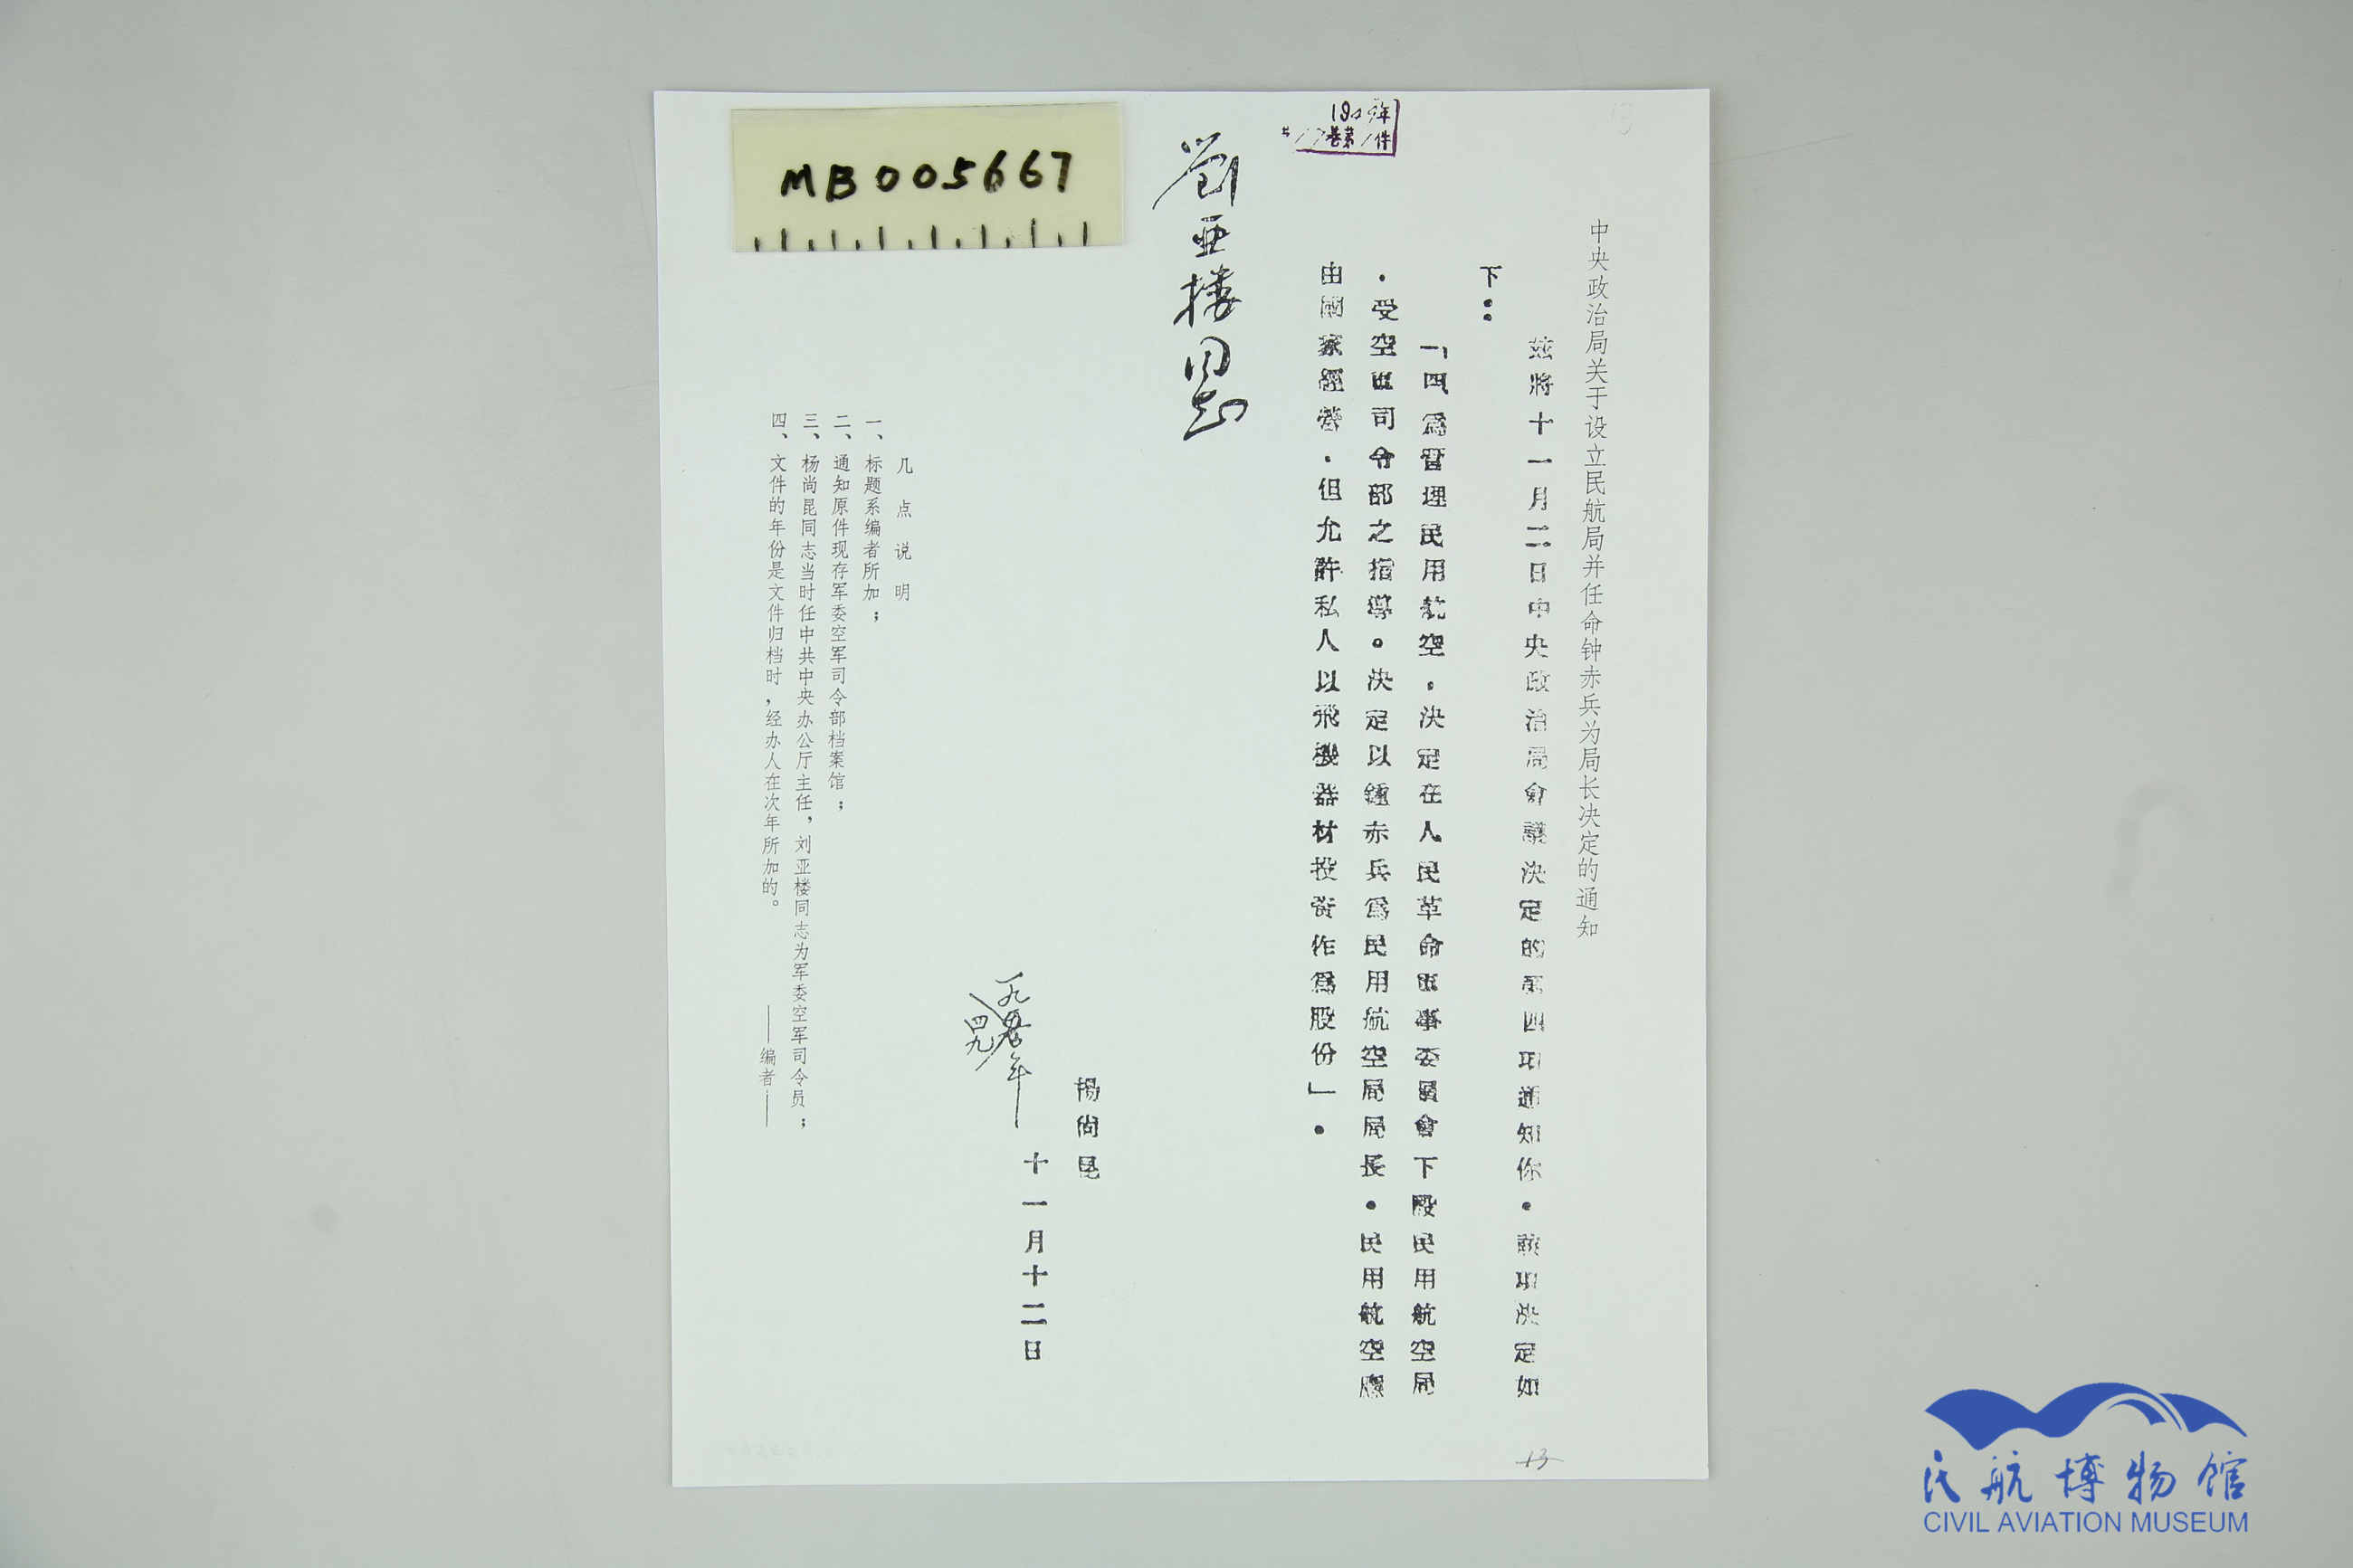 中央政治局关于设立民航局并任命钟赤兵为局长决定的通知
茲將十一月二日中央政治局會議決定的第四項通知你・該項決定如
下：
「四、爲管理民用航空，決定在人民革命軍事委員會下設民用航空局
・受空軍司令部之指導。決定以鍾赤兵爲民用航空局局長・民用航空應
由國家經營・但允許私人以飛機器材投資作爲股份」・
劉亚楼同志
楊尚昆
十一月十二日
一九五〇年
四九
几点说明
一、标题系编者所加；
二、通知原件现存军委空军司令部档案馆；
三、杨尚昆同志当时任中共中央办公厅主任，刘亚楼同志为军委空军司令员；
四、文件的年份是文件归档时，经办人在次年所加的。
——编者——
MB005667
卷第1件
13
民航博物馆
CIVIL AVIATION MUSEUM